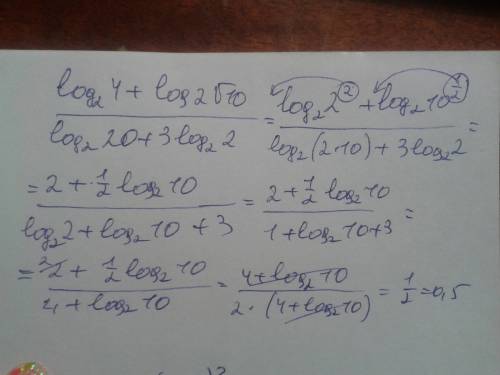 (log₂4 + log2√10)/(log₂20 + 3log₂2) = (log₂2² + log₂10^(1/2))/(log₂(2·10) + 3log₂2) =
= (2 + ½log₂10)/(log₂2 + log₂10 + 3) = (2 + ½log₂10)/(1 + log₂10 + 3) =
= (2 + ½log₂10)/(4 + log₂10) = (4 + log₂10)/(2·(4 + log₂10)) = ½ = 0,5